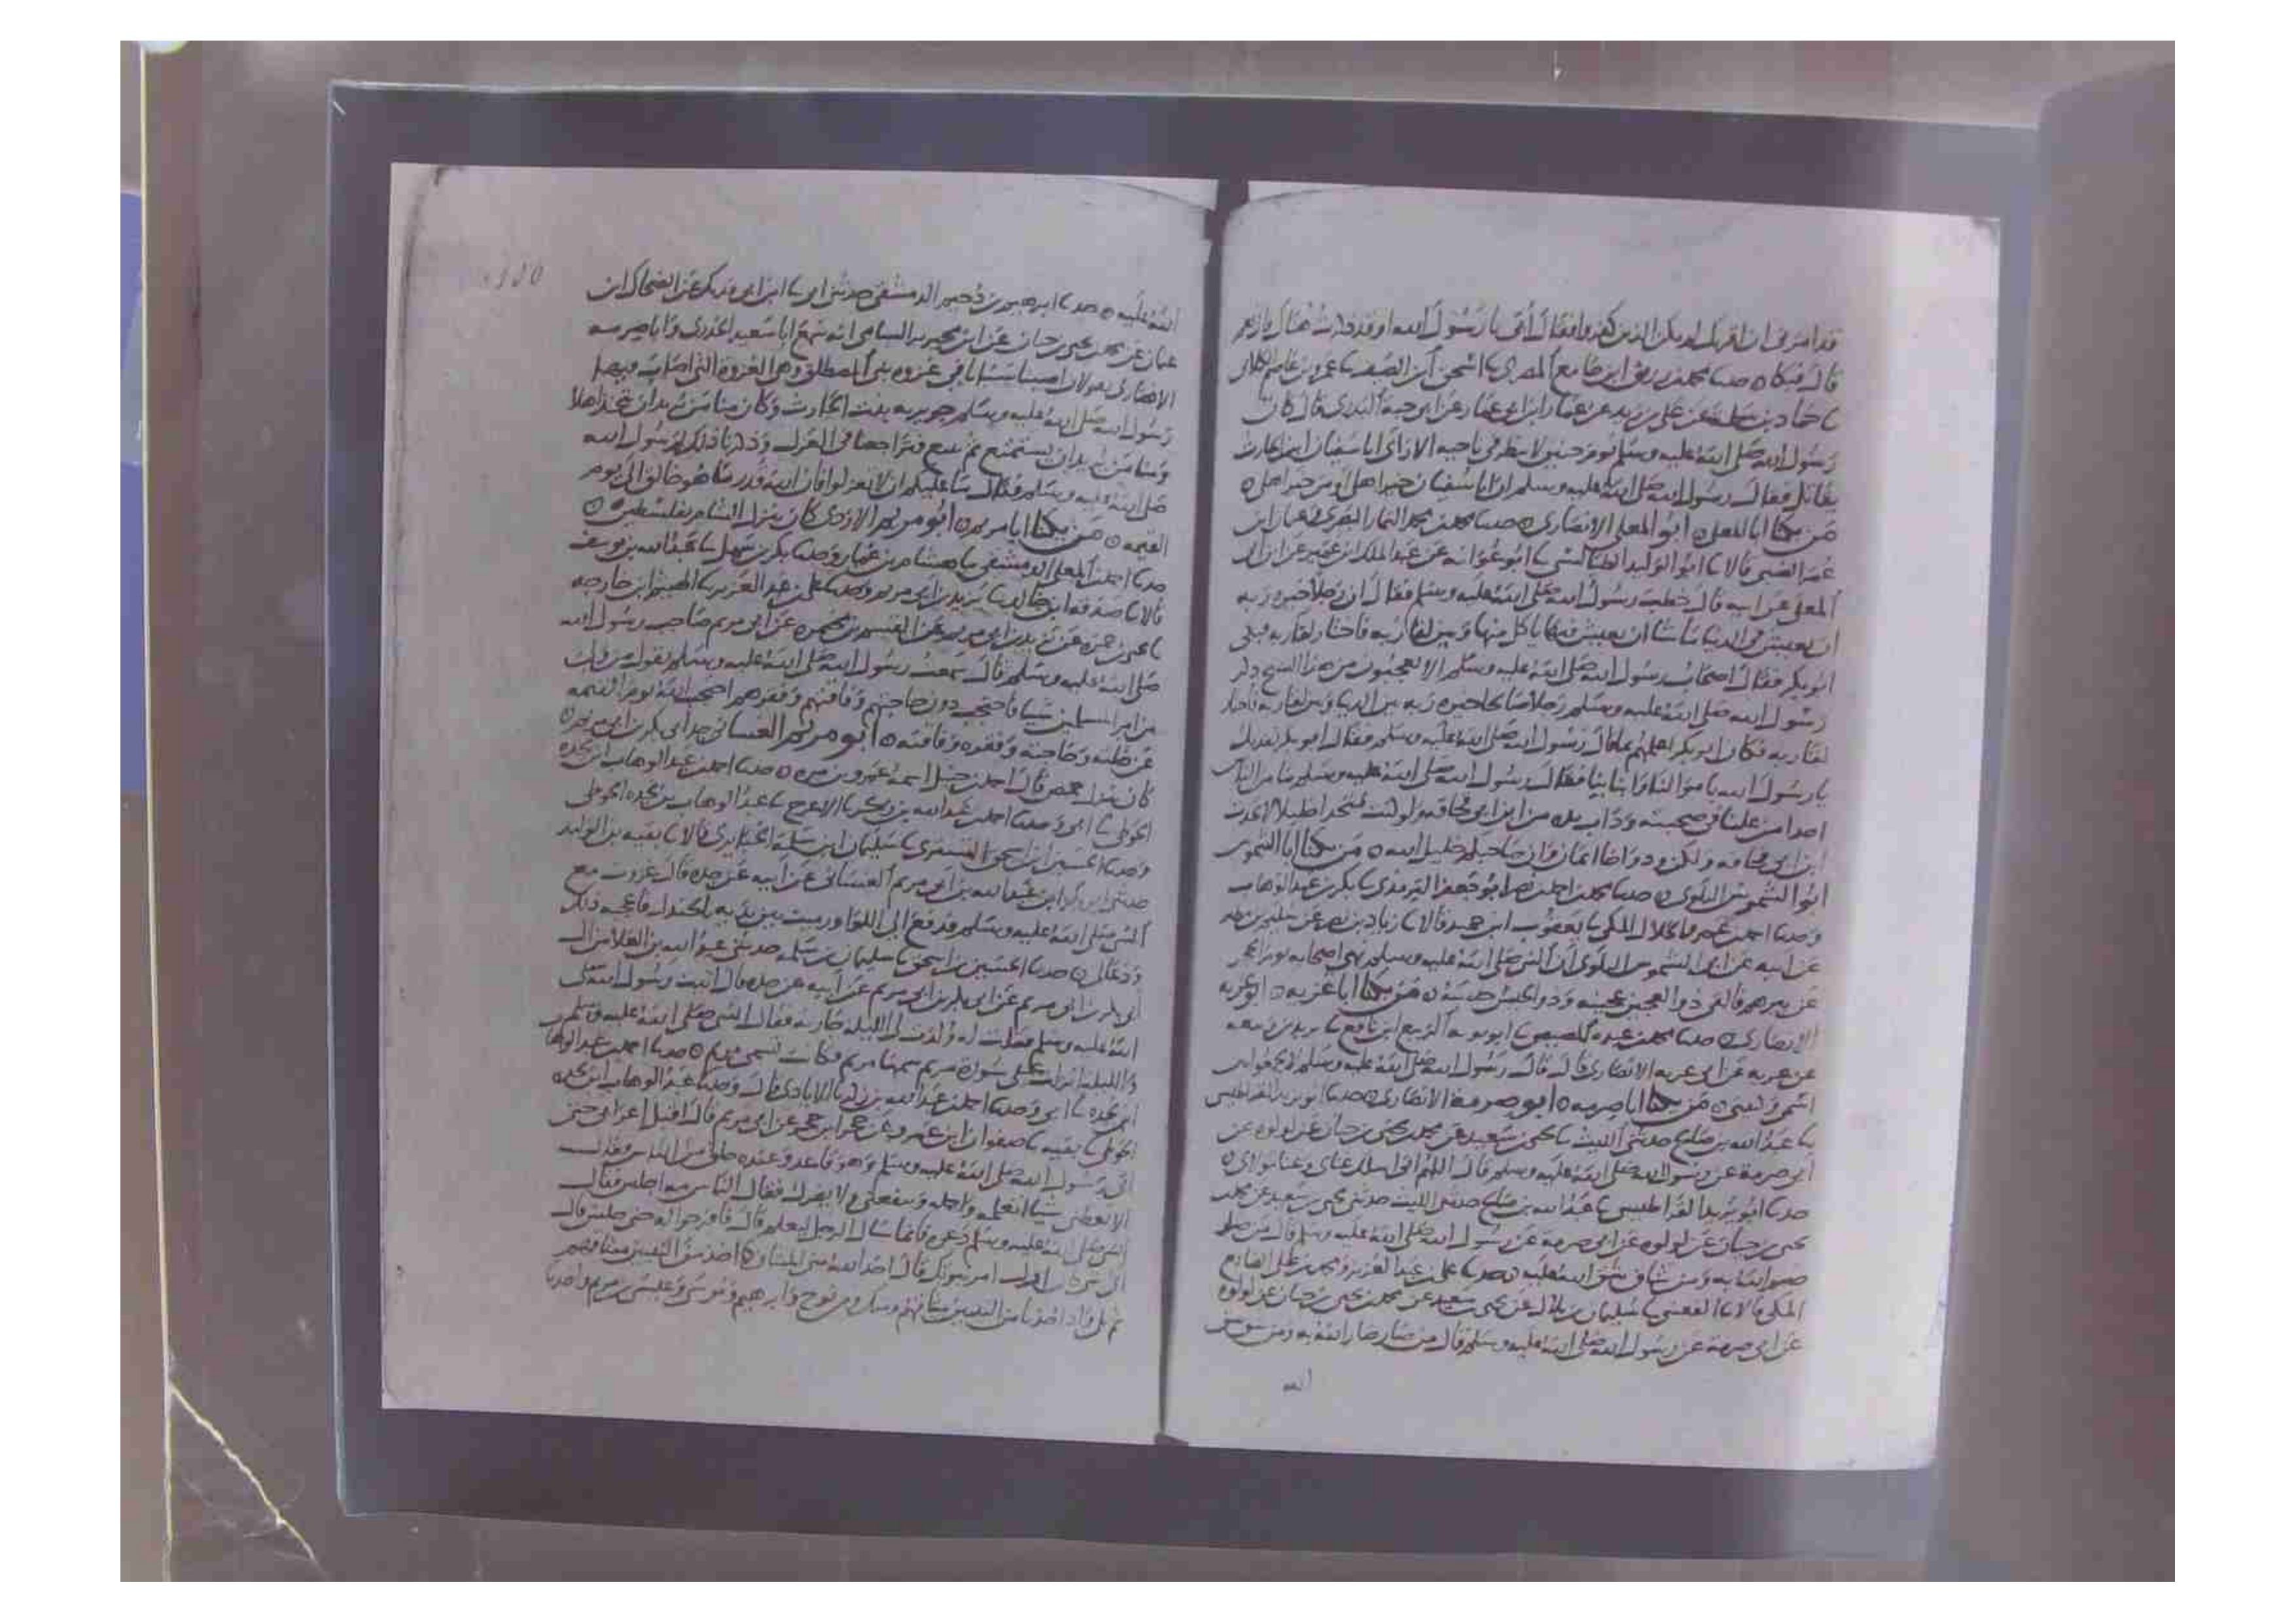 قد امرنى ان اقريك لم يكن الذين كفروا فقال أبى يا رسول الله او قد ذكرت هناك قال نعم
قال فبكا ه حدثنا محمد بن رزيق ابن جامع المصرى ثنا اسحق ابن الضيف ثنا عمرو بن عاصم الكلابى
ثنا حماد بن سلمة عن على بن زيد عن عمار ابن ابى عمار عن ابى حبة البدرى قال كان
رسول الله صلى الله عليه وسلم يوم حنين لا ينظر فى ناحية الا رأى ابا سفيان ابن الحارث
يقاتل فقال رسول الله صلى الله عليه وسلم ان ابا سفيان خير اهلى او من خير اهلى ه
من يكنا ابا المعلى ه ابو المعلى الانصارى ه حدثنا محمد بن محمد التمار البصرى وعثمان ابن
عمر الضبى قالا ثنا ابو الوليد الطيالسى ثنا ابو عوانه عن عبد الملك ابن عمير عن ابن ابى
المعلى عن ابيه قال خطب رسول الله صلى الله عليه وسلم فقال ان رجلا خيره ربه
ان يعيش فى الدنيا ما شا ان يعيش فيها ياكل منها وبين لقا ربه فاختار لقا ربه فبكى
ابو بكر فقال اصحاب رسول الله صلى الله عليه وسلم الا تعجبون من هذا الشيخ ذكر
رسول الله صلى الله عليه وسلم رجلا صالحا خيره ربه بين الدنيا وبين لقا ربه فاختار
لقا ربه فكان ابو بكر اعلمهم بما قال رسول الله صلى الله عليه وسلم فقال ابو بكر نفديك
يا رسول الله باموالنا وابنائنا فقال رسول الله صلى الله عليه وسلم ما من الناس
احد امن علينا فى صحبته وذات يده من ابن ابى قحافه ولو كنت متخذا خليلا لاتخذت
ابن ابى قحافه ولكن ود واخا ايمان وان صاحبكم خليل الله ه من يكنا ابا الشموس
ابو الشموس البلوى ه حدثنا محمد بن احمد بن نصر ابو جعفر الترمذى ثنا بكر بن عبد الوهاب
وحدثنا احمد بن عمرو الخلال المكى ثنا يعقوب ابن حميد قالا ثنا زياد بن نصر عن سليم بن مطير
عن ابيه عن ابى الشموس البلوى ان النبى صلى الله عليه وسلم نهى اصحابه يوم الحجر
عن بيرهم فالقى ذو العجين عجينه وذو الحيس حيسه ه من يكنا ابا غزيه ه ابو غزيه
الانصارى ه حدثنا محمد بن عبده المصيصى ثنا ابو توبه الربيع ابن نافع ثنا يزيد بن ربيعه
عن غزيه عن ابى غزيه الانصارى قال قال رسول الله صلى الله عليه وسلم لا تجمعوا بين
اسمى وكنيتى ه من يكنا ابا صرمه ه ابو صرمة الانصارى ه حدثنا ابو يزيد القراطيسى
ثنا عبد الله بن صالح حدثنى الليث ثنا يحيى بن سعيد عن محمد بن يحيى بن حبان عن لولوه عن
ابى صرمة عن رسول الله صلى الله عليه وسلم قال اللهم انى اسلك غناى وغنا مولاى ه
حدثنا ابو يزيد القراطيسى ثنا عبد الله بن صالح حدثنى الليث حدثنى يحيى بن سعيد عن محمد بن
يحيى بن حبان عن لولوه عن ابى صرمة عن رسول الله صلى الله عليه وسلم قال من ضار
ضر الله به ومن شاق شق الله عليه ه حدثنا على بن عبد العزيز ومحمد بن على الصايغ
المكى قالا ثنا القعنبى ثنا سليمان بن بلال عن يحيى بن سعيد عن محمد بن يحيى بن حبان عن لولوه
عن ابى صرمة عن رسول الله صلى الله عليه وسلم قال من ضار ضار الله به ومن شق شق
الله
الله عليه ه حدثنا ابرهيم بن دحيم الدمشقى حدثنى ابى ثنا ابن ابى فديك عن الضحاك ابن
عثمان عن محمد بن يحيى بن حبان عن ابن محيريز الشامى انه سمع ابا سعيد الخدرى وابا صرمه
الانصارى يقولان اصبنا سبايا فى غزوه بنى المصطلق وهى الغزوه التى اصاب فيها
رسول الله صلى الله عليه وسلم جويريه بنت الحارث وكان منا من يريد ان يتخذ اهلا
ومنا من يريد ان يستمتع ثم يبيع فتراجعنا فى العزل وذكرنا ذلك لرسول الله
صلى الله عليه وسلم فقال ما عليكم ان لا تعزلوا فان الله قدر ما هو خالق الى يوم
القيمه ه من يكنا ابا مريم ه ابو مريم الازدى كان ينزل الشام بفلسطين ه
حدثنا احمد بن المعلى الدمشقى ثنا هشام بن عمار وحدثنا بكر بن سهل ثنا عبد الله بن يوسف
قالا ثنا صدقه ابن خالد ثنا يزيد بن ابى مريم وحدثنا على بن عبد العزيز ثنا الهيثم ابن خارجه
ثنا يحيى بن حمزه عن يزيد بن ابى مريم عن القسم بن مخيمره عن ابى مريم صاحب رسول الله
صلى الله عليه وسلم قال سمعت رسول الله صلى الله عليه وسلم يقول من ولى
من امر المسلمين شيا فاحتجب دون حاجتهم وفاقتهم وفقرهم احتجب الله يوم القيمه
عن خلته وحاجته وفقره وفاقته ه ابو مريم الغسانى جد ابى بكر بن ابى مريم ه
كان ينزل حمص قال احمد بن حنبل اسمه عمرو بن مره ه حدثنا احمد بن عبد الوهاب ابن نجده
الحوطى ثنا ابى وحدثنا احمد بن عبد الله بن زكريا الاعرج ثنا عبد الوهاب بن نجده الحوطى
وحدثنا الحسين ابن اسحق التسترى ثنا سليمان ابن سلمة الخبايرى قالا ثنا بقيه بن الوليد
حدثنى ابو بكر ابن عبد الله بن ابى مريم الغسانى عن ابيه عن جده قال غزوت مع
النبى صلى الله عليه وسلم فدفع الى اللوا ورميت بين يديه بالجندل فاعجبه ذلك
ودعا لى ه حدثنا الحسين بن اسحق ثنا سليمان بن سلمه حدثنى عبد الله بن العلا من ال
ابى بكر بن ابى مريم عن ابى بكر بن ابى مريم عن ابيه عن جده قال اتيت رسول الله صلى
الله عليه وسلم فقلت له ولدت لى الليله جاريه فقال النبى صلى الله عليه وسلم
والليله انزلت على سورة مريم سمها مريم فكانت تسمى مريم ه حدثنا احمد بن عبد الوهاب
ابن نجده ثنا ابى وحدثنا احمد بن عبد الله بن زكريا الايادى قال وحدثنا عبد الوهاب ابن نجده
الحوطى ثنا بقيه ثنا صفوان ابن عمرو عن حجر ابن حجر عن ابى مريم قال اقبل اعرابى حتى
اتى رسول الله صلى الله عليه وسلم وهو قاعد وعنده خلق من الناس فقال
الا تعطنى شيا اتعلمه واحمله وينفعنى ولا يضرك فقال الناس مه اجلس فقال
النبى صلى الله عليه وسلم دعوه فانما سال الرجل ليعلم قال فافرجوا له حتى جلس قال
اى شى كان اول امر نبوتك قال اخذ الله منى الميثاق كما اخذ من النبيين ميثاقهم
ثم تلا واذ اخذنا من النبيين ميثاقهم ومنك ومن نوح وابرهيم وموسى وعيسى بن مريم واخذنا